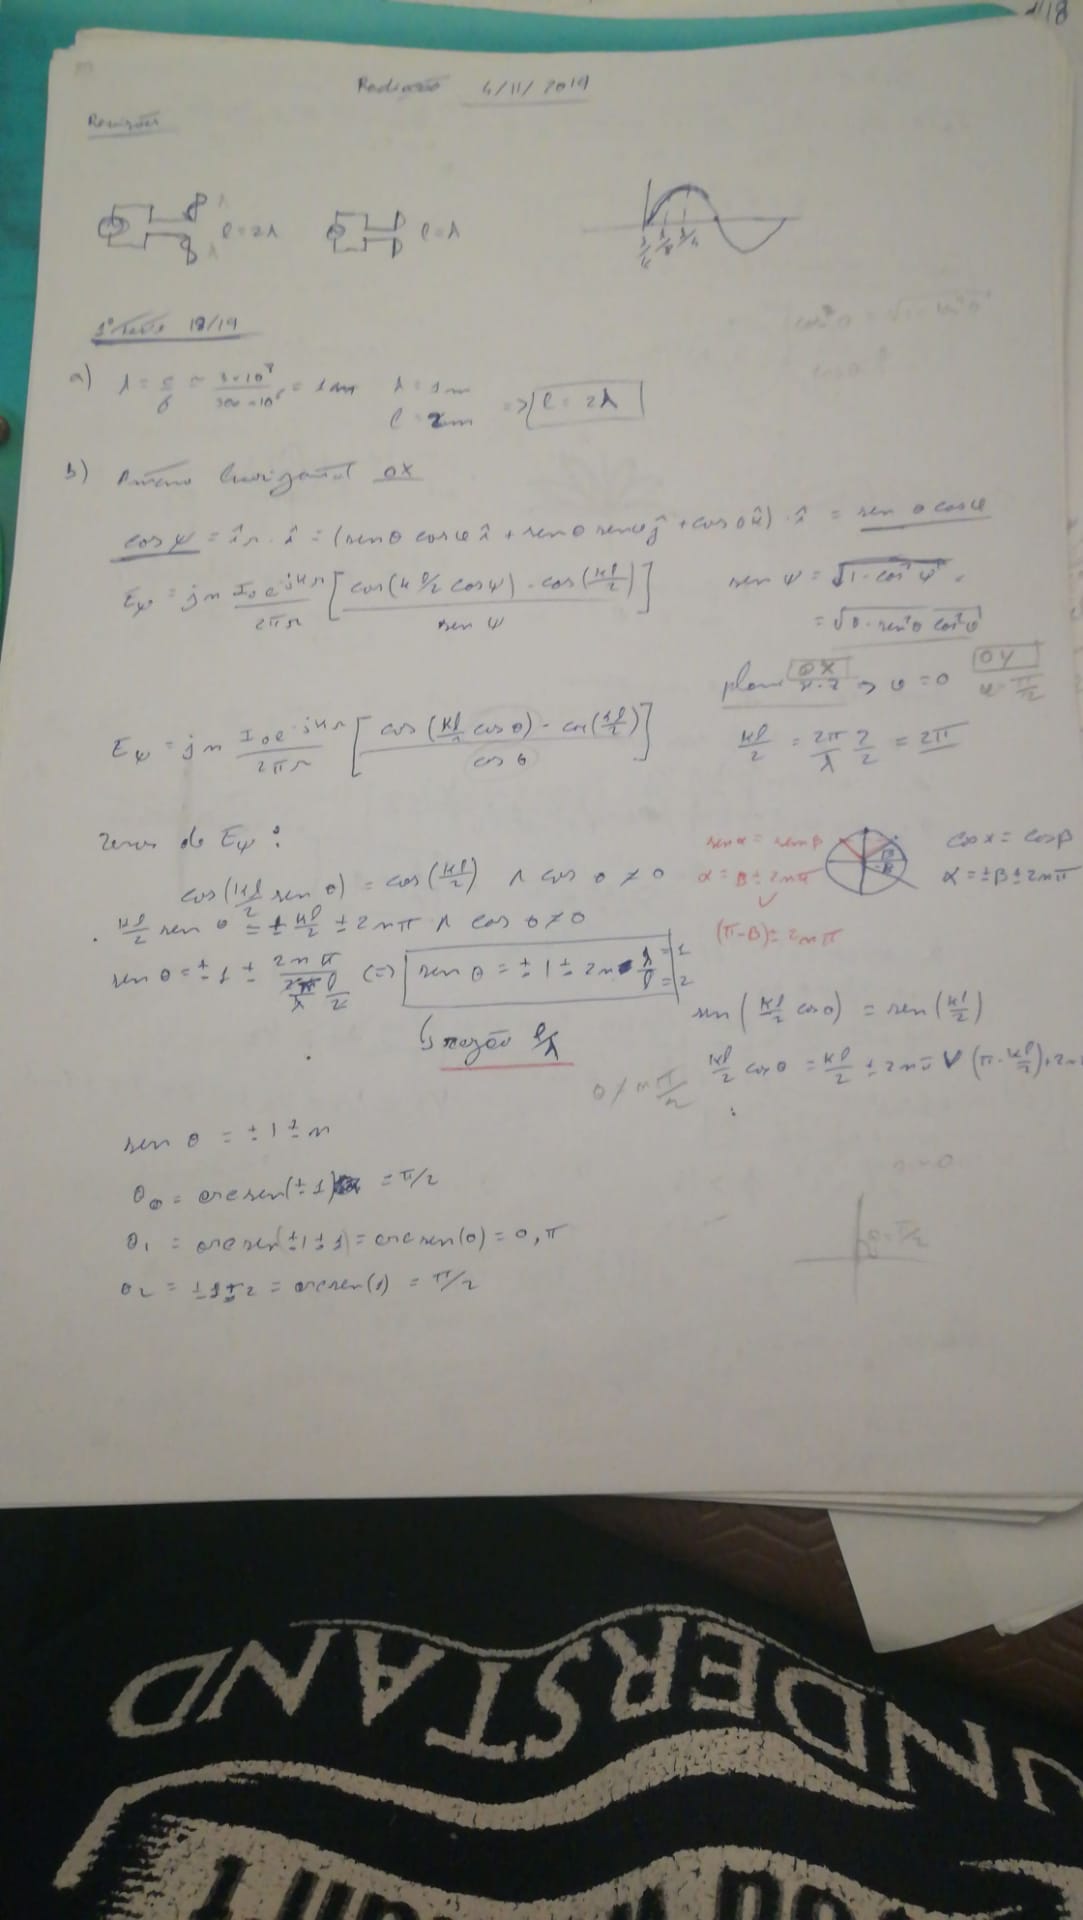 118
Radiação 4/11/2019
Revisões
l = 2λ
l = λ
1º teste 18/19
a) λ = c/f = 3×10⁸/300×10⁶ = 1m λ = 1m
l = 2m => l = 2λ
b) horizontal OX
cos ψ = î_r · î = (senθ cosφ î + senθ senφ ĵ + cosθ k̂) · î = sen θ cosφ
E_ψ = jη I₀e^-jkr/2πr [cos(k l/2 cosψ) - cos(kl/2)/sen ψ]
sen ψ = √1-cos²ψ
= √1-sen²θ cos²φ
plano OX x-z => φ = 0
OY φ = π/2
E_ψ = jη I₀e^-jkr/2πr [cos(kl/2 senθ) - cos(kl/2)/cos θ]
kl/2 = 2π/λ 2/2 = 2π
zeros de E_ψ :
cos(kl/2 sen θ) = cos(kl/2) ∧ cos θ ≠ 0
kl/2 sen θ = ± kl/2 ± 2nπ ∧ cos θ ≠ 0
sen α = sen β
α = β ± 2nπ
∨
(π-β) ± 2nπ
cos α = cos β
α = ±β ± 2nπ
sen θ = ± 1 ± 2nπ / 2π/λ l/2 (=) sen θ = ± 1 ± 2n λ/l =1 =2
↳ razão l/λ
sen(kl/2 cosθ) = sen(kl/2)
kl/2 cosθ = kl/2 ± 2nπ ∨ (π-kl/2)+2n
θ ≠ nπ/2
sen θ = ± 1 ± n
θ₀ = arcsen(± 1) = π/2
θ₁ = arcsen(± 1 ± 1) = arcsen(0) = 0, π
θ₂ = ±1±2 = arcsen(1) = π/2
n=0
θ=π/2
UNDERSTAND